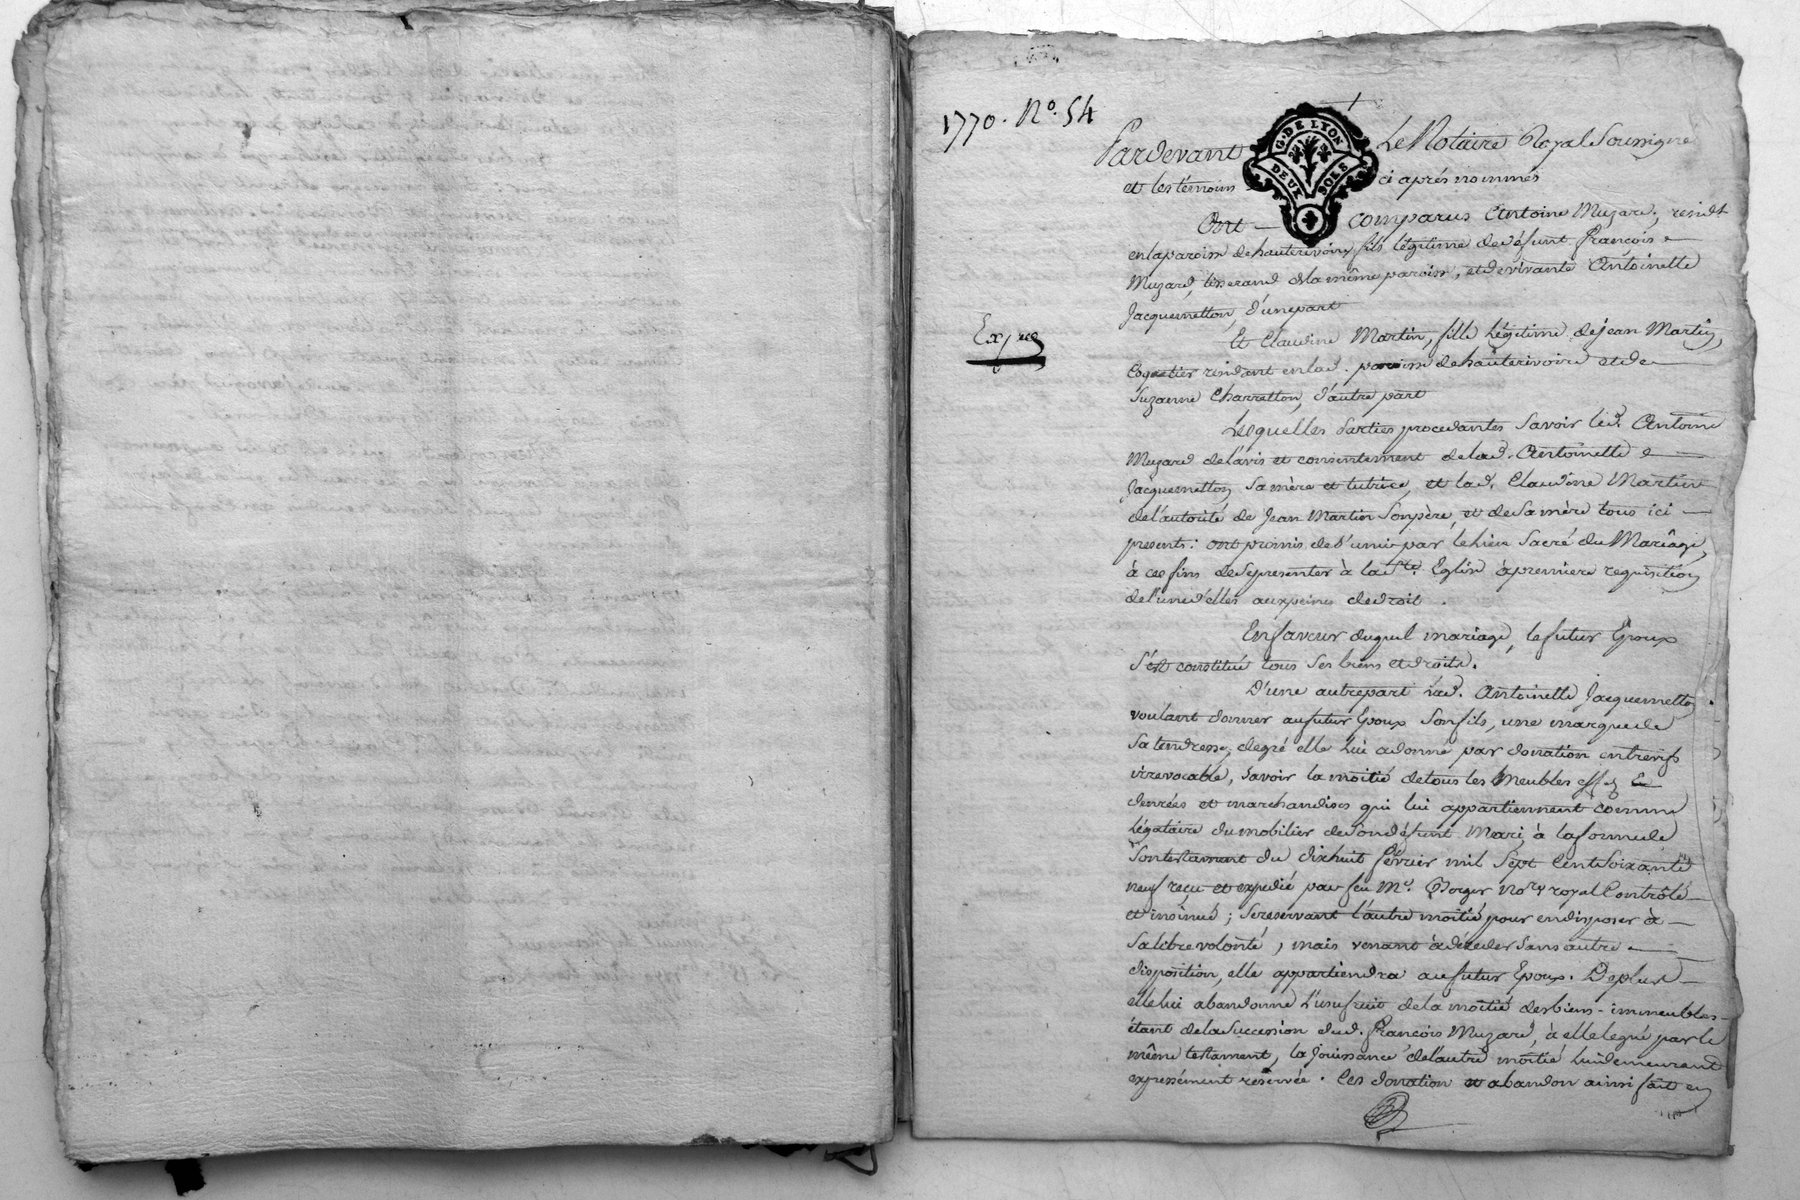 1770. N.º 54
G. DE LYON
DEUX SOLS
Pardevant Le Notaire Royal Soussigné
et les témoins ci aprés nommés
Ont comparus Antoine Muzard, resid.t
en la paroisse de hauterivoire fils légitime de défunt françois
Muzard, tisserand de la même paroisse, et de vivante Antoinette
Jacquemetton, d'une part
Et Claudine Martin, fille légitime de jean Martin,
Coquetier residant en lad. paroisse de hauterivoire et de
Suzanne Charretton, d'autre part
Exped
Lesquelles Parties procedantes Savoir led. Antoine
Muzard de l'avis et consentement de lad. Antoinette
Jacquemetton, Sa mère et tutrice, et lad. Claudine Martin
de l'autorité de Jean Martin Son père, et de Sa mère tous ici
presents: ont promis de s'unir par le lien Sacré du Mariage,
à ces fins de Se presenter à la S.te Eglise à premiere requisition
de l'une d'elles aux peines de droit.
En faveur duquel mariage, le futur Epoux
S'est constitué tous Ses biens et droits.
D'une autre part lad. Antoinette Jacquemetton
voulant donner au futur Epoux Son fils, une marque de
Sa tendresse, de gré elle lui a donné par donation entrevifs
irrevocable, Savoir la moitié de tous les Meubles eff.
denrées et marchandises qui lui appartiennent comme
légataire du mobilier de Son défunt Mari, à la forme de
Son testament du dixhuit février mil Sept Cent Soixante
neuf reçu et expedié par feu M.e Berger no.re royal Contrôlé
et insinué; Se reservant l'autre moitié pour en disposer à
Sa libre volonté, mais venant à décéder Sans autre
disposition, elle appartiendra au futur Epoux. De plus
elle lui abandonne L'usufruit de la moitié des biens-immeubles
étant de la Succession dud. françois Muzard, à elle legué par le
même testament, la jouissance de l'autre moitié lui demeurant
expressément reservée. Ces donation et abandon ainsi fait en